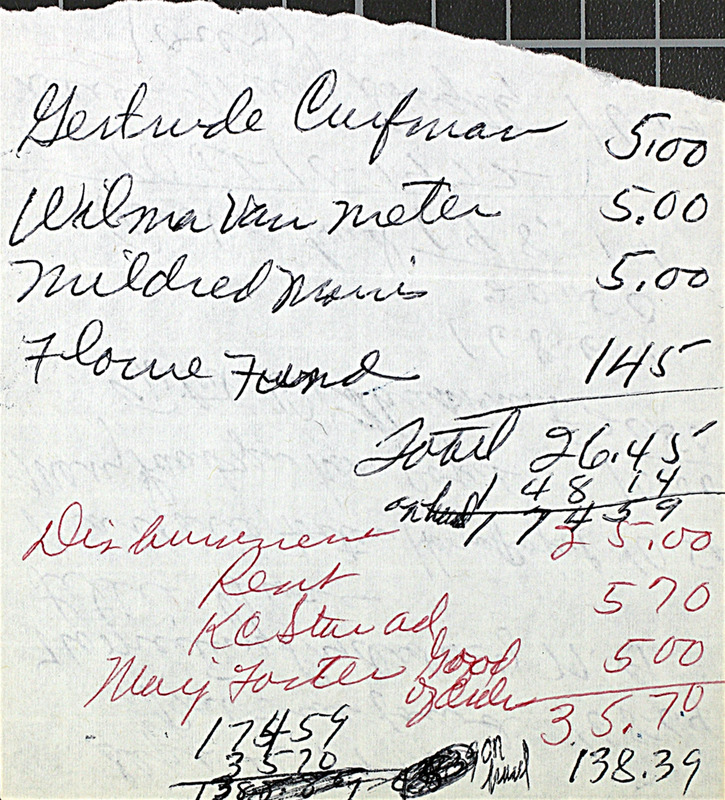 Gertrude Curfman 5.00
Wilma Van Meter 5.00
Mildred Morris 5.00
Flowe Fund 145
Total 26.45
on hand 148 14
174 59
Disbursement 25.00
Rent
KC Star ad 570
Marj Foster Good 500
of Club 35.70
17459
3570
on hand 138.39